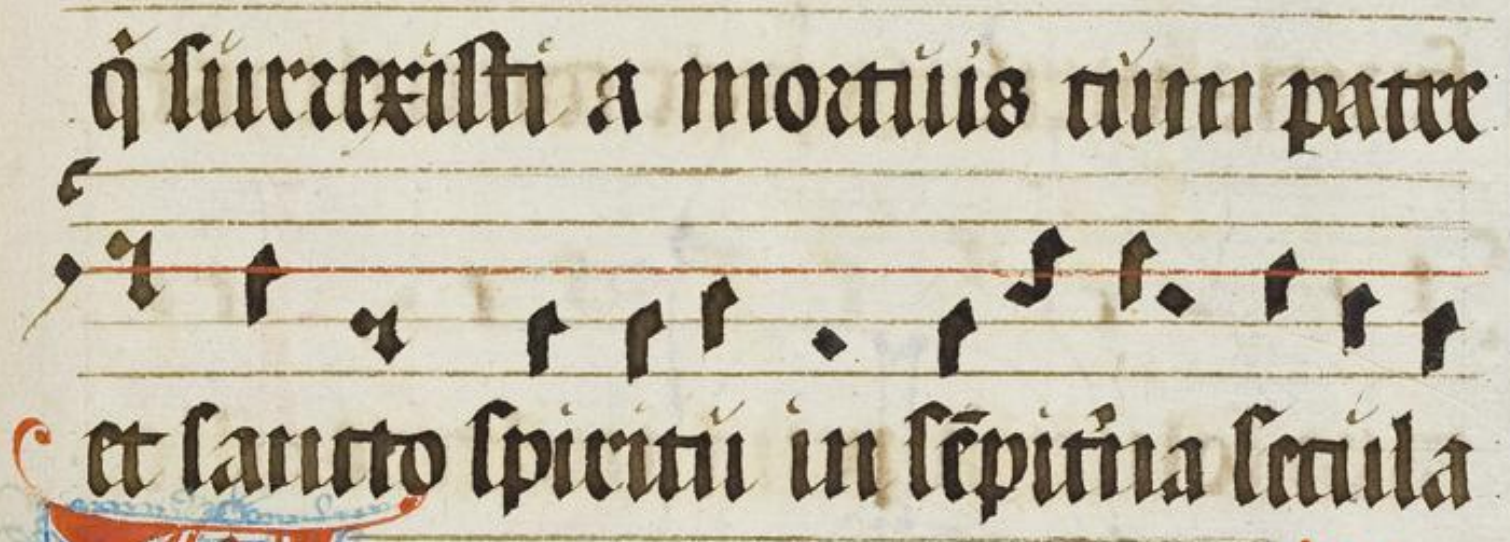 q̇ surrexisti a mortuis cum patre
et sancto spiritu in sēpit̾na secula